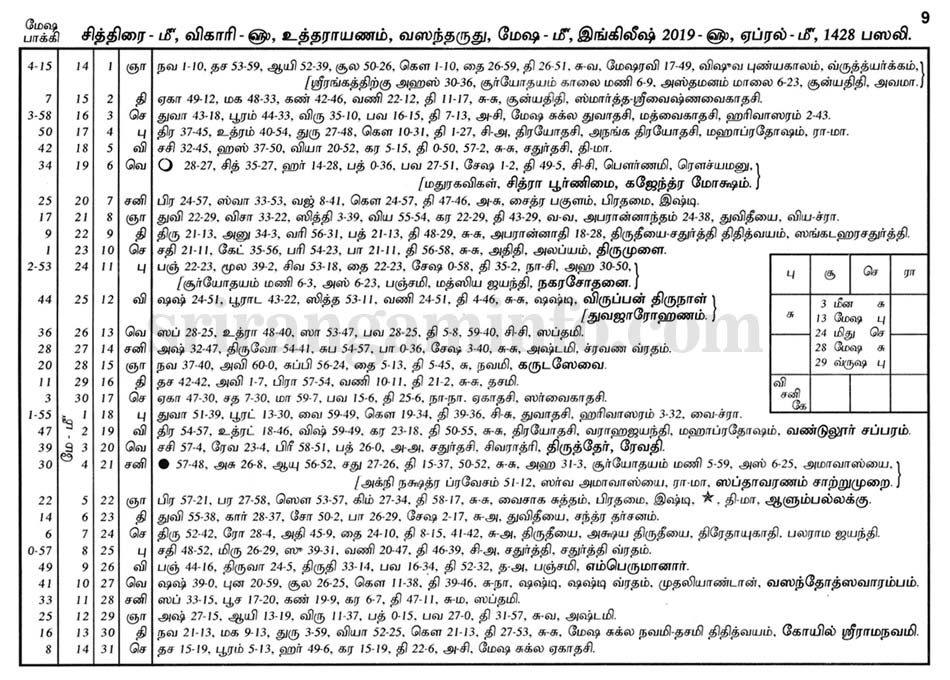 9
மேஷ பாக்கி
சித்திரை - மீ, விகாரி - ௵, உத்தராயணம், வஸந்தருது, மேஷ - மீ, இங்கிலீஷ் 2019 - ௵, ஏப்ரல் - மீ, 1428 பஸலி.
4-15 14 1 ஞா நவ 1-10, தச 53-59, ஆயி 52-39, சூல 50-26, கௌ 1-10, தை 26-59, தி 26-51, சு-வ, மேஷரவி 17-49, விஷுவ புண்யகாலம், வ்ருத்யர்க்கம்,
[ஸ்ரீரங்கத்திற்கு அஹஸ் 30-36, சூர்யோதயம் காலை மணி 6-9, அஸ்தமனம் மாலை 6-23, சூன்யதிதி, அவமா.
7 15 2 தி ஏகா 49-12, மக 48-33, கண் 42-46, வணி 22-12, தி 11-17, சு-சு, சூன்யதிதி, ஸ்மார்த்த-ஸ்ரீவைஷ்ணவைகாதசி.
3-58 16 3 செ துவா 43-18, பூரம் 44-33, விரு 35-10, பவ 16-15, தி 7-13, அ-சி, மேஷ சுக்ல துவாதசி, மத்வைகாதசி, ஹரிவாஸரம் 2-43.
50 17 4 பு திர 37-45, உத்ரம் 40-54, துரு 27-48, கௌ 10-31, தி 1-27, சி-அ, திரயோதசி, அநங்க திரயோதசி, மஹாப்ரதோஷம், ரா-மா.
42 18 5 வி சசி 32-45, ஹஸ் 37-50, வியா 20-52, கர 5-15, தி 0-50, 57-2, சு-சு, சதுர்தசி, தி-மா.
34 19 6 வெ 28-27, சித் 35-27, ஹர் 14-28, பத் 0-36, பவ 27-51, சேஷ 1-2, தி 49-5, சி-சி, பௌர்ணமி, ரௌச்யமனு,
[மதுரகவிகள், சித்ரா பூர்ணிமை, கஜேந்த்ர மோக்ஷம்.
25 20 7 சனி பிர 24-57, ஸ்வா 33-53, வஜ் 8-41, கௌ 24-57, தி 47-46, அ-சு, சைத்ர பகுளம், பிரதமை, இஷ்டி.
17 21 8 ஞா துவி 22-29, விசா 33-22, ஸித்தி 3-39, விய 55-54, கர 22-29, தி 43-29, வ-வ, அபரான்னாந்தம் 24-38, துவிதீயை, விய-ச்ரா.
9 22 9 தி திரு 21-13, அனு 34-3, வரி 56-31, பத் 21-13, தி 48-29, சு-சு, அபரான்னாதி 18-28, திருதீயை-சதுர்த்தி திதித்வயம், ஸங்கடஹரசதுர்த்தி.
1 23 10 செ சதி 21-11, கேட் 35-56, பரி 54-23, பா 21-11, தி 56-58, சு-சு, அதிதி, அலப்யம், திருமுளை.
2-53 24 11 பு பஞ் 22-23, மூல 39-2, சிவ 53-18, தை 22-23, சேஷ 0-58, தி 35-2, நா-சி, அஹ 30-50,
[சூர்யோதயம் மணி 6-3, அஸ் 6-23, பஞ்சமி, மத்ஸிய ஜயந்தி, நகரசோதனை.
44 25 12 வி ஷஷ் 24-51, பூராட 43-22, ஸித்த 53-11, வணி 24-51, தி 4-46, சு-சு, ஷஷ்டி, விருப்பன் திருநாள்
[துவஜாரோஹணம்.
36 26 13 வெ ஸப் 28-25, உத்ரா 48-40, ஸா 53-47, பவ 28-25, தி 5-8, 59-40, சி-சி, ஸப்தமி.
28 27 14 சனி அஷ் 32-47, திருவோ 54-41, சுப 54-57, பா 0-36, சேஷ 3-40, சு-சு, அஷ்டமி, ச்ரவண வ்ரதம்.
20 28 15 ஞா நவ 37-40, அவி 60-0, சுப்பி 56-24, தை 5-13, தி 5-45, சு, நவமி, கருடஸேவை.
11 29 16 தி தச 42-42, அவி 1-7, பிரா 57-54, வணி 10-11, தி 21-2, சு-சு, தசமி.
3 30 17 செ ஏகா 47-30, சத 7-30, மா 59-7, பவ 15-6, தி 25-6, நா-நா. ஏகாதசி, ஸர்வைகாதசி.
மே - மீ
1-55 1 18 பு துவா 51-39, பூரட் 13-30, வை 59-49, கௌ 19-34, தி 39-36, சி-சு, துவாதசி, ஹரிவாஸரம் 3-32, வை-ச்ரா.
47 2 19 வி திர 54-57, உத்ரட் 18-46, விஷ் 59-49, கர 23-18, தி 50-55, சு-சு, திரயோதசி, வராஹஜயந்தி, மஹாப்ரதோஷம், வண்டுலூர் சப்பரம்.
39 3 20 வெ சசி 57-4, ரேவ 23-4, பிரீ 58-51, பத் 26-0, அ-அ, சதுர்தசி, சிவராத்ரி, திருத்தேர், ரேவதி.
30 4 21 சனி 57-48, அசு 26-8, ஆயு 56-52, சது 27-26, தி 15-37, 50-52, சு-சு, அஹ 31-3, சூர்யோதயம் மணி 5-59, அஸ் 6-25, அமாவாஸ்யை,
[அக்னி நக்ஷத்ர ப்ரவேசம் 51-12, ஸர்வ அமாவாஸ்யை, ரா-மா, ஸப்தாவரணம் சாற்றுமுறை.
22 5 22 ஞா பிர 57-21, பர 27-58, ஸௌ 53-57, கிம் 27-34, தி 58-17, சு-சு, வைசாக சுத்தம், பிரதமை, இஷ்டி, ★, தி-மா, ஆளும்பல்லக்கு.
14 6 23 தி துவி 55-38, கார் 28-37, சோ 50-2, பா 26-29, சேஷ 2-17, சு-அ, துவிதீயை, சந்த்ர தர்சனம்.
6 7 24 செ திரு 52-42, ரோ 28-4, அதி 45-9, தை 24-10, தி 8-15, 41-42, சு-அ, திருதீயை, அக்ஷய திருதீயை, திரேதாயுகாதி, பலராம ஜயந்தி.
0-57 8 25 பு சதி 48-52, மிரு 26-29, ஸு 39-31, வணி 20-47, தி 46-39, சி-அ, சதுர்த்தி, சதுர்த்தி வ்ரதம்.
49 9 26 வி பஞ் 44-16, திருவா 24-5, திருதி 33-14, பவ 16-34, தி 52-32, த-அ, பஞ்சமி, எம்பெருமானார்.
41 10 27 வெ ஷஷ் 39-0, புன 20-59, சூல 26-25, கௌ 11-38, தி 39-46, சு-நா, ஷஷ்டி, ஷஷ்டி வ்ரதம், முதலியாண்டான், வஸந்தோத்ஸவாரம்பம்.
33 11 28 சனி ஸப் 33-15, பூச 17-20, கண் 19-9, கர 6-7, தி 47-11, சு-ம, ஸப்தமி.
25 12 29 ஞா அஷ் 27-15, ஆயி 13-19, விரு 11-37, பத் 0-15, பவ 27-0, தி 31-57, சு-வ, அஷ்டமி.
16 13 30 தி நவ 21-13, மக 9-13, துரு 3-59, வியா 52-25, கௌ 21-13, தி 27-53, சு-சு, மேஷ சுக்ல நவமி-தசமி திதித்வயம், கோயில் ஸ்ரீராமநவமி.
8 14 31 செ தச 15-19, பூரம் 5-13, ஹர் 49-6, கர 15-19, தி 22-6, அ-சி, மேஷ சுக்ல ஏகாதசி.
பு சூ செ ரா
சு
3 மீன சு
13 மேஷ பு
24 மிது செ
28 மேஷ சு
29 வ்ருஷ பு
வி
சனி
கே
srirangaminfo.com